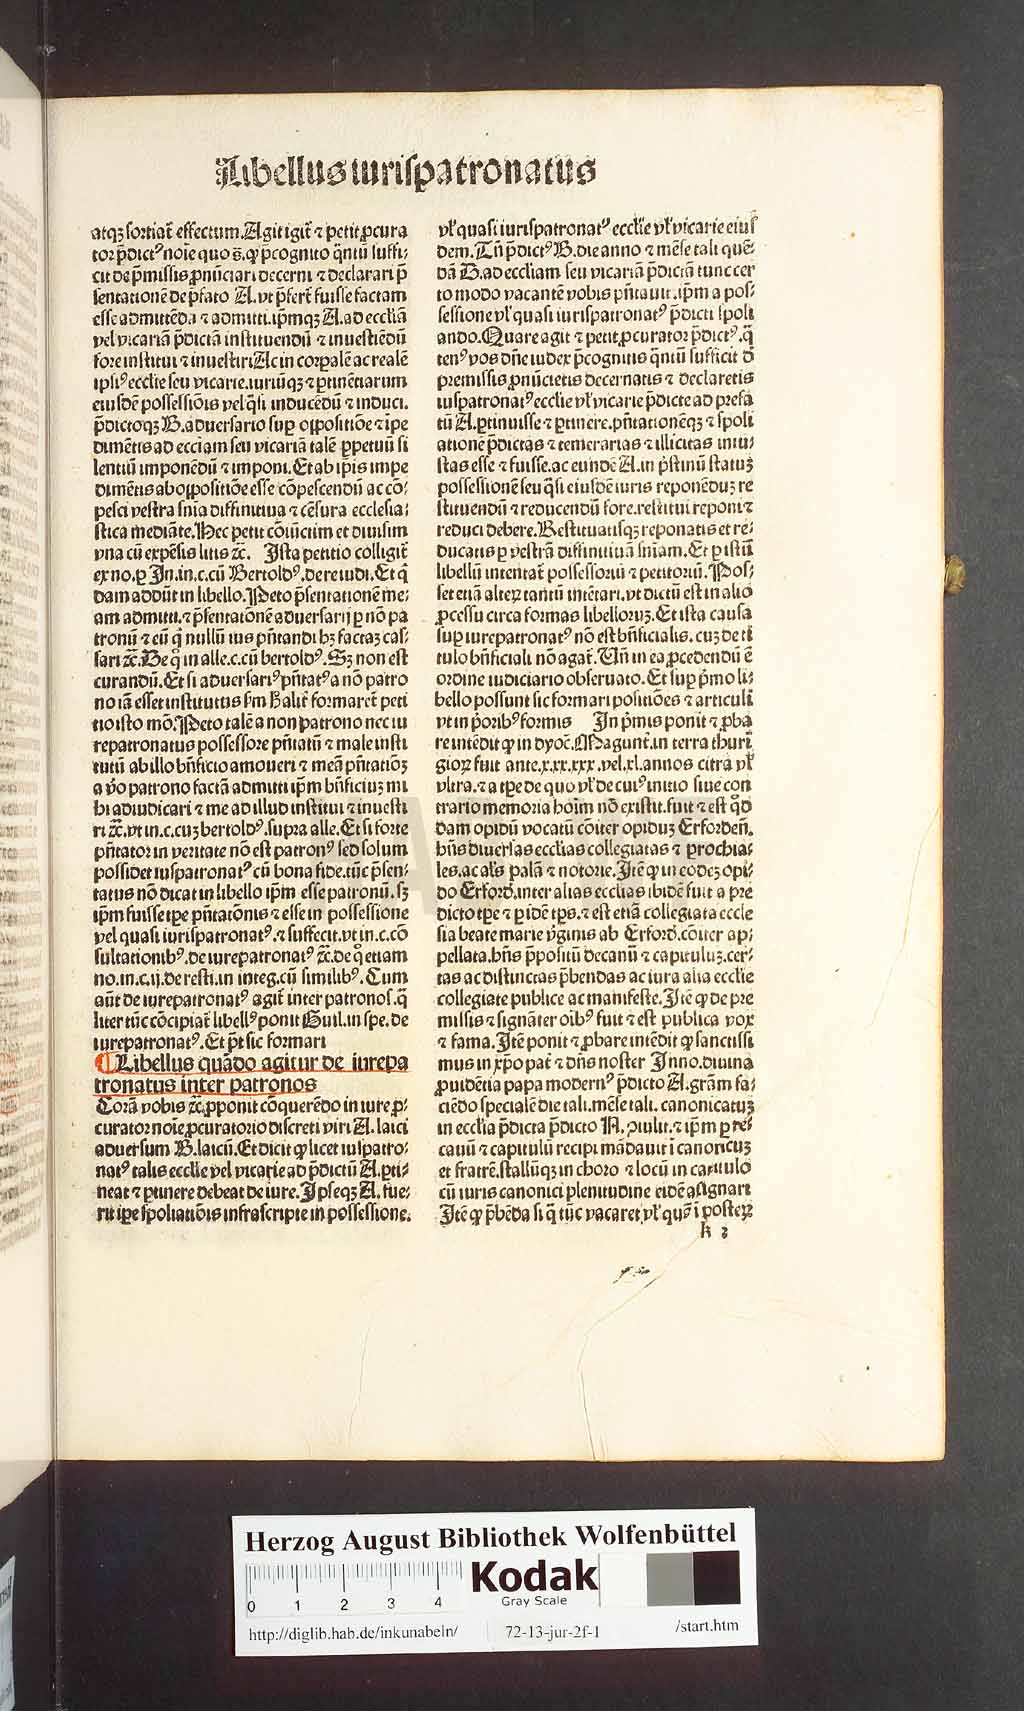 Libellus iurispatronatus
atqȝ sortiat᷑ effectum. Agit igit᷑ ⁊ petit ꝓcura
tor p̄dictꝰ noīe quo s̄. ꝙ p̄cognito q̄ntū suffi-
cit de p̄missis ꝓnūciari decerni ⁊ declarari p̄
sentationē de p̄fato A. vt p̄fert᷑ fuisse factam
esse admittēda ⁊ admitti. ipm̄qȝ A. ad eccliā
vel vicariā p̄dictā instituendū ⁊ inuestiēdū
fore institui ⁊ inuestiri Ac in corpalē ac realē
ipsiꝰ ecclie seu vicarie. iuriūqȝ ⁊ ꝑtinētiarum
eiusdē possessiōis vel q̄si inducēdū ⁊ induci.
p̄dictoqȝ B. aduersario suꝑ oppositiōe ⁊ īpe
dimētis ad ecciam seu vicariā talē ꝑpetuū si
lentiū imponēdū ⁊ imponi. Et ab ip̄is impe
dimētis ab oppositiōe esse cōpescendū ac cō-
pesci vestra sn̄ia diffinitiua ⁊ cēsura ecclesia-
stica mediāte. Hec petit cōiūctim et diuisim
vna cū expēsis litis ⁊c̄. Ista petitio colligit᷑
ex no. ꝑ In. in. c. cū Bertoldꝰ. de re iudi. Et q̄
dam addūt in libello. Peto p̄sentationē me-
am admitti. ⁊ p̄sentationē aduersarij ꝑ nō pa
tronū ⁊ eū q̄ nullū ius pn̄tandi hȝ factaȝ cas-
sari ⁊c̄. De q̊ in alle. c. cū bertoldꝰ. Sȝ non est
curandū. Et si aduersariꝰ pn̄tatꝰ a nō patro
no iā esset institutus ẜm Halit᷑ formaret᷑ peti
tio isto mō. Peto talē a non patrono nec iu
repatronatus possessore pn̄tatū ⁊ male insti
tutū ab illo bn̄ficio amoueri ⁊ meā pn̄tatiōȝ
a v̊o patrono factā admitti ip̄m bn̄ficiuȝ mi
hi adiudicari ⁊ me ad illud institui ⁊ inuesti
ri ⁊c̄. vt in. c. cuȝ bertoldꝰ. supra alle. Et si forte
pn̄tator in veritate nō est patronꝰ sed solum
possidet iuspatronatꝰ cū bona fide. tūc p̄sen-
tatus nō dicat in libello ip̄m esse patronū. sȝ
ip̄m fuisse tꝑe pn̄tatōnis ⁊ esse in possessione
vel quasi iurispatronatꝰ. ⁊ sufficit. vt in. c. cō
sultationibꝰ. de iurepatronatꝰ ⁊c̄. de q̊ etiam
no. in. c. ij. de resti. in integ. cū similibꝰ. Cum
aūt de iurepatronatꝰ agit᷑ inter patronos. q̄
liter tūc cōcipiat᷑ libellꝰ ponit Guil. in spe. de
iurepatronatꝰ. Et pt̄ sic formari
¶ Libellus quādo agitur de iurepa
tronatus inter patronos
Corā vobis ⁊c̄. ꝓponit cōquerēdo in iure ꝓ-
curator noīe ꝓcuratorio discreti viri A. laici
aduersum B. laicū. Et dicit ꝙ licet iuspatro-
natꝰ talis ecclie vel vicarie ad p̄dictū A. ꝑti-
neat ⁊ ꝑtinere debeat de iure. Ipseqȝ A. fue-
rit tꝑe spoliatiōis infrascripte in possessione.
vl̓ quasi iurispatronatꝰ ecclie vl̓ vicarie eius
dem. Tn̄ p̄dictꝰ B. die anno ⁊ mēse tali quē-
dā D. ad eccliam seu vicariā p̄dictā tunc cer
to modo vacantē vobis pn̄tauit. ip̄m a pos-
sessione vl̓ quasi iurispatronatꝰ p̄dicti spoli
ando. Quare agit ⁊ petit ꝓcurator p̄dictꝰ. q̄
tenꝰ vos dn̄e iudex p̄cognitis q̄ntū sufficit d̄
premissis ꝓnūcietis decernatis ⁊ declaretis
iuspatronatꝰ ecclie vl̓ vicarie p̄dicte ad prefa
tū A. ꝑtinuisse ⁊ ꝑtinere. pn̄tationēqȝ ⁊ spoli
ationē p̄dictas ⁊ temerarias ⁊ illicitas iniu-
stas esse ⁊ fuisse. ac eundē A. in p̄stinū statuȝ
possessionē seu q̄si eiusdē iuris reponēduȝ re
stituendū ⁊ reducendū fore. restitui reponi ⁊
reduci debere. Restituatisqȝ reponatis et re-
ducatis ꝑ vestrā diffinitiuā sn̄iam. Et ꝑ istū
libellū intentat᷑ possessoriū ⁊ petitoriū. Pos-
set etiā alteꝝ tantū intētari. vt dictū est in alio
ꝓcessu circa formas libelloruȝ. Et ista causa
suꝑ iurepatronatꝰ nō est bn̄ficialis. cuȝ de ti
tulo bn̄ficiali nō agat᷑. Un̄ in ea ꝓcedendū ē
ordine iudiciario obseruato. Et suꝑ p̄mo li-
bello possunt sic formari positiōes ⁊ articuli
vt in p̄oribꝰ formis In p̄mis ponit ⁊ ꝓba
re intēdit ꝙ in dyoc̄. Magunt̄. in terra thuri
gioꝝ fuit ante. x. xx. xxx. vel. xl. annos citra vl̓
vltra. ⁊ a tꝑe de quo vl̓ de cuiꝰ initio siue con
trarist memoria hoīm nō existit. fuit ⁊ est q̊d
dam opidū vocatū cōiter opiduȝ Erforden̄.
hn̄s diuersas ecclias collegiatas ⁊ ꝑrochia-
les. ac al's palā ⁊ notorie. Itē ꝙ in eodeȝ opi-
do Erford̄. inter alias ecclias ibidē fuit a pre
dicto tꝑe ⁊ ꝑ idē tp̄s. ⁊ est etiā collegiata eccle
sia beate marie v̊ginis ab Erford̄. cōiter ap-
pellata. hn̄s p̄positū decanū ⁊ capituluȝ. cer-
tas ac distinctas p̄bendas ac iura alia ecclie
collegiate publice ac manifeste. Itē ꝙ de pre
missis ⁊ signāter oībꝰ fuit ⁊ est publica vox
⁊ fama. Itē ponit ⁊ ꝓbare intēdit ꝙ sanctissi
mus in xp̄o pat᷑ ⁊ dn̄s noster Inno. diuina
ꝓuidētia papa modernꝰ p̄dicto A. gr̄am fa-
ciēdo specialē die tali. mēse tali. canonicatuȝ
in ecclia p̄dicta p̄dicto A. ꝓuīdit. ⁊ ip̄m ꝑ re-
cauū ⁊ capitulū recipi mādauit ī canonicuȝ
et fratrē. stallūqȝ in choro ⁊ locū in capitulo
cū iuris canonici plenitudine eidē assignari
Itē ꝙ p̄bēda si q̄ tūc vacaret vl̓ quā ī posteꝝ
k 3
Herzog August Bibliothek Wolfenbüttel
0 1 2 3 4
Kodak
Gray Scale
http://diglib.hab.de/inkunabeln/ 72-13-jur-2f-1 /start.htm